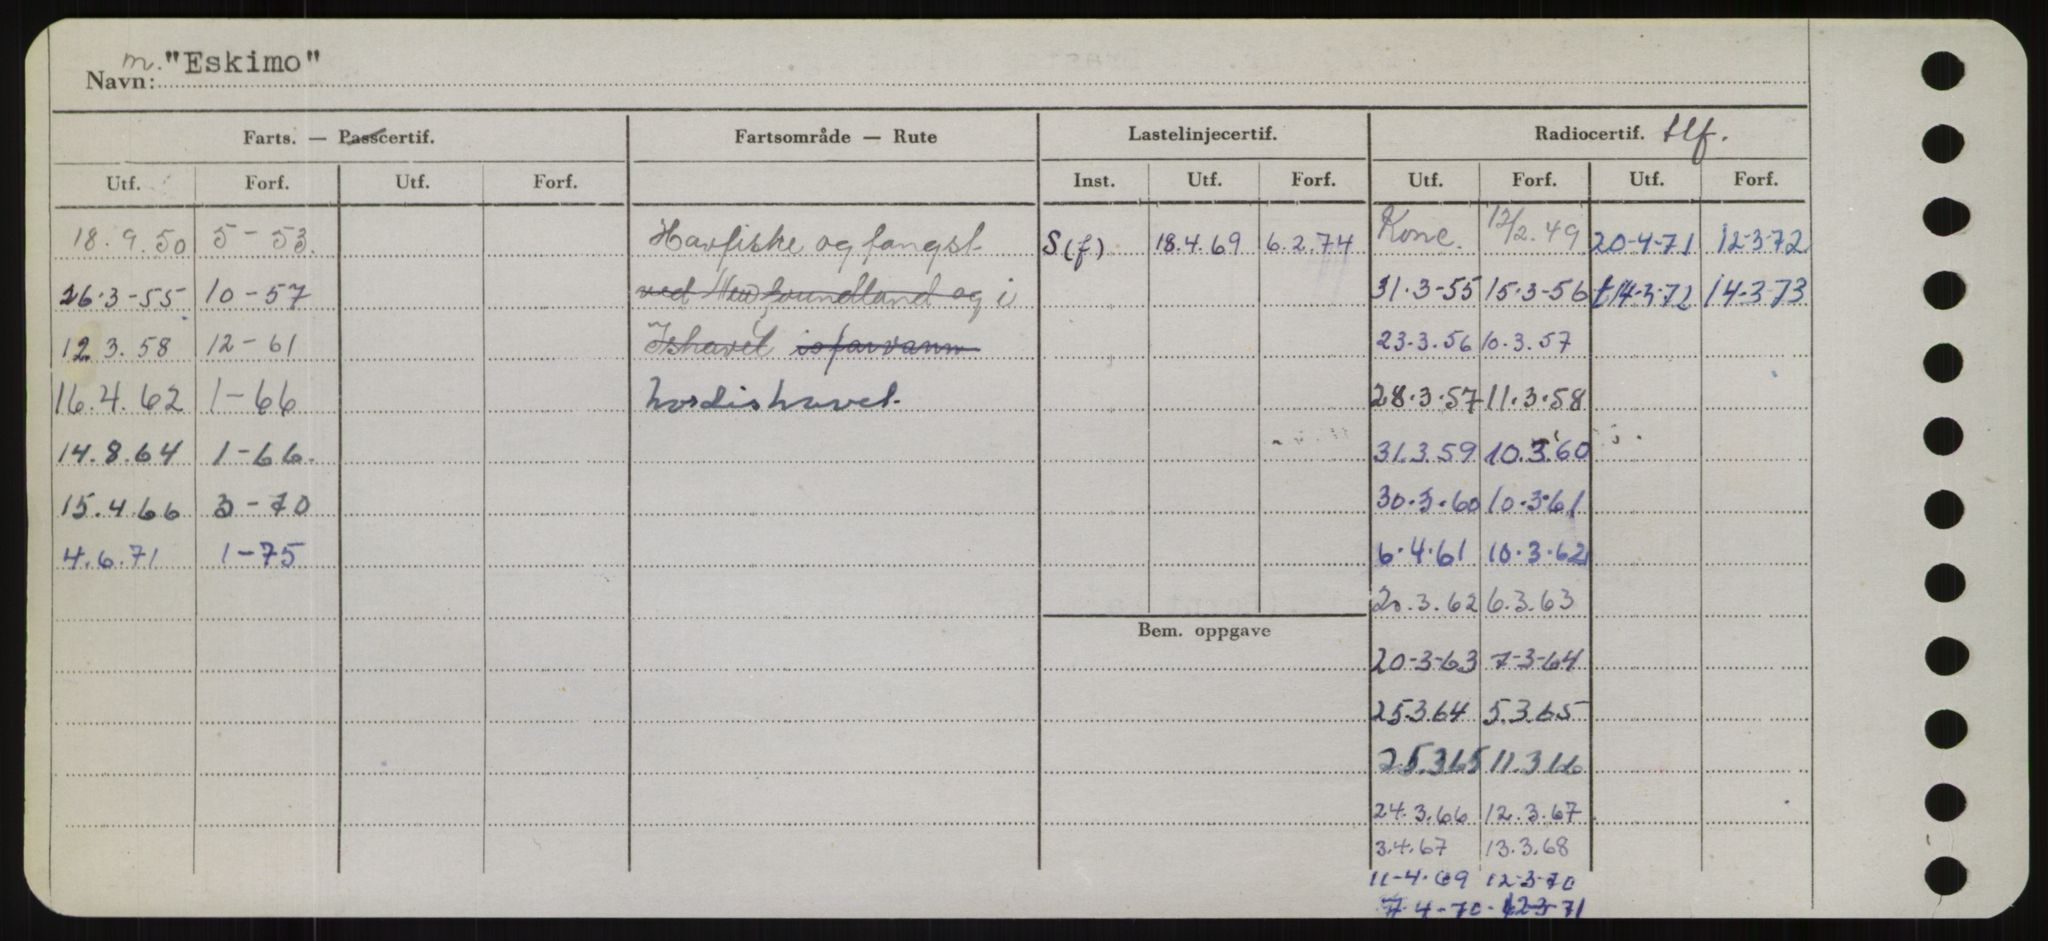 Navn: m. "Eskimo"
Farts. — Passcertif. Fartsområde — Rute Lastelinjecertif. Radiocertif. tlf.
Utf. Forf. Utf. Forf. Inst. Utf. Forf. Utf. Forf. Utf. Forf.
18.9.50 5-53. Havfiske og fangst S(f) 18.4.69 6.2.74 Konc. 12/2.49 20-4-71 12-3-72
26.3-55 10-57 ved New Foundland og i 31.3-55 15.3-56 t14-3-72 14-3-73
12.3.58 12-61 Ishavet isfarvann 23.3.56 10.3.57
16.4.62 1-66 Nordishavet. 28.3-57 11.3-58
14.8.64 1-66. 31.3.59 10.3.60
15.4.66 3-70 30.3.60 10.3.61
4.6.71 1-75 6.4.61 10.3.62
20.3.62 6.3.63
Bem. oppgave
20-3-63 7-3-64
25.3.64 5.3.65
25.3.65 11.3.66
24.3.66 12.3.67
3.4.67 13.3.68
11-4-69 12-3-70
7-4-70. 12-3-71